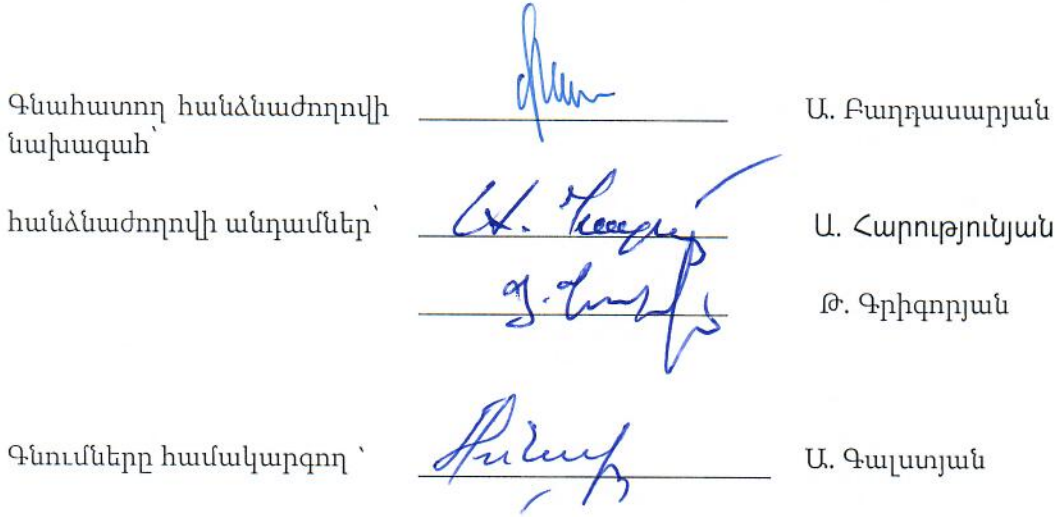 Գնահատող հանձնաժողովի Ա. Բաղդասարյան
նախագահ՝
հանձնաժողովի անդամներ՝ Ա. Հարությունյան
Թ. Գրիգորյան
Գնումները համակարգող ՝ Ա. Գալստյան